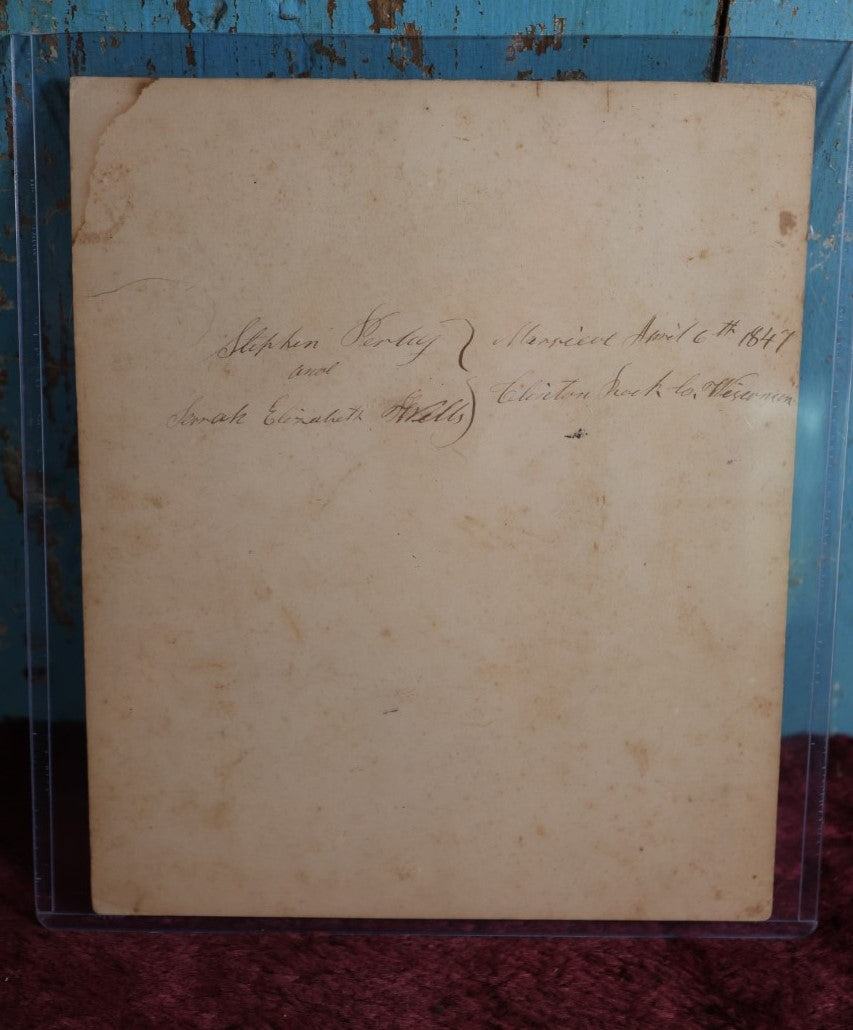 Stephen Perley } Married April 6th 1847
and
Sarah Elizabeth Wells } Clinton Rock Co. Wisconsin